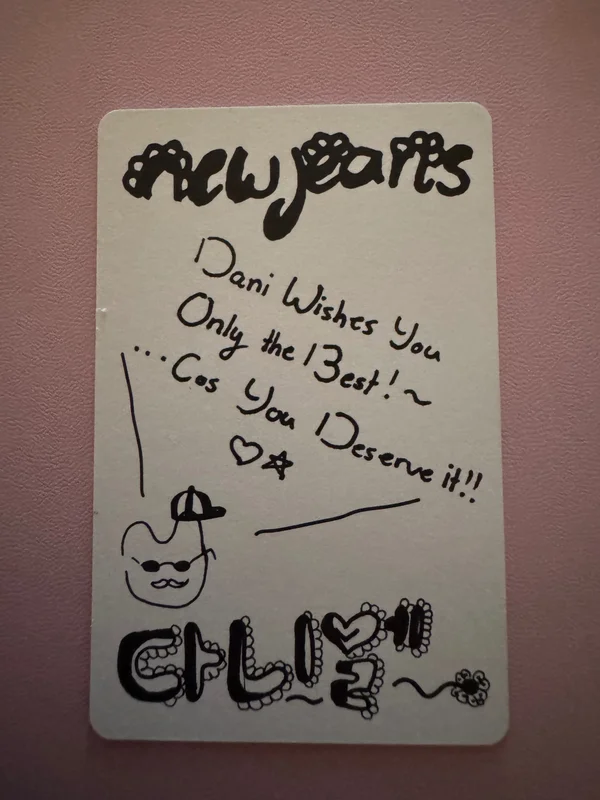 new jeans
Dani Wishes You
Only the Best!~
...Cos You Deserve it!!
다니엘